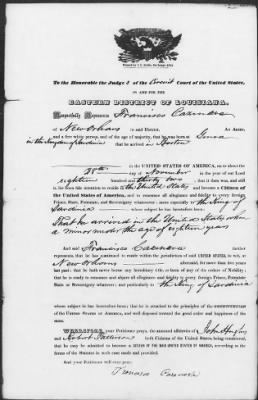 To the Honorable the Judge s of the Circuit Court of the United States,
IN AND FOR THE
EASTERN DISTRICT OF LOUISIANA.
Respectfully Represents Francisco Cazeneva
of New Orleans in said District, An Alien,
and a free white person, and of the age of majority, that he was born at Genoa
in the Kingdom of Sardinia that he arrived in Boston
in the UNITED STATES OF AMERICA, on or about the
28th day of November in the year of our Lord
eighteen hundred thirty two that it then was, and still
is his bona fide intention to reside in the United States and become a Citizen of
the United States of America, and to renounce all allegiance and fidelity to every foreign
Prince, State, Potentate, and Sovereignty whatsoever: more especially to the King of
Sardinia whose subject he has heretofore been.
That he arrived in the United States when
a minor under the age of eighteen years
And said Francisco Cazeneva further
represents, that he has continued to reside within the jurisdiction of said UNITED STATES, to wit, in
New Orleans aforesaid, for more than two years
last past; that he hath never borne any hereditary title, or been of any of the orders of Nobility;
that he is ready to renounce and abjure all allegiance and fidelity to every Foreign Prince, Potentate
State or Sovereignty whatever, and particularly to the King of Sardinia
whose subject he has heretofore been; that he is attached to the principles of the CONSTITUTION
of the UNITED STATES OF AMERICA, and well disposed toward the good order and happiness of
the same.
WHEREFORE, your Petitioner prays, the annexed affidavits of John Hughes
and Robert Patterson both Citizens of the United States being considered,
that he may be admitted to become a CITIZEN OF THE SAID UNITED STATES OF AMERICA, according to the
forms of the Statute in such case made and provided.
And your Petitioner will ever pray,